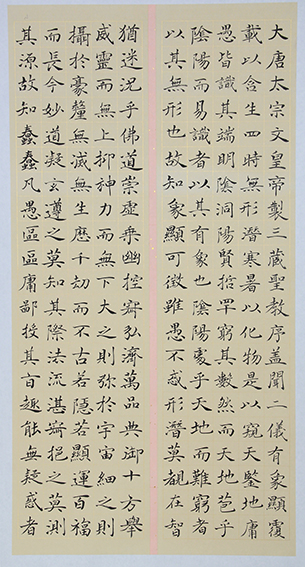 大唐太宗文皇帝製三藏聖教序盖聞二儀有象顯覆
載以含生四時無形潛寒暑以化物是以窺天鑒地庸
愚皆識其端明陰洞陽賢哲罕窮其數然而天地苞乎
陰陽而易識者以其有象也陰陽處乎天地而難窮者
以其無形也故知象顯可徵雖愚不惑形潛莫覩在智
猶迷況乎佛道崇虛乘幽控寂弘濟萬品典御十方舉
威靈而無上抑神力而無下大之則弥於宇宙細之則
攝於豪釐無滅無生歷千劫而不古若隱若顯運百福
而長今妙道凝玄遵之莫知其際法流湛寂挹之莫測
其源故知蠢蠢凡愚區區庸鄙投其旨趣能無疑惑者